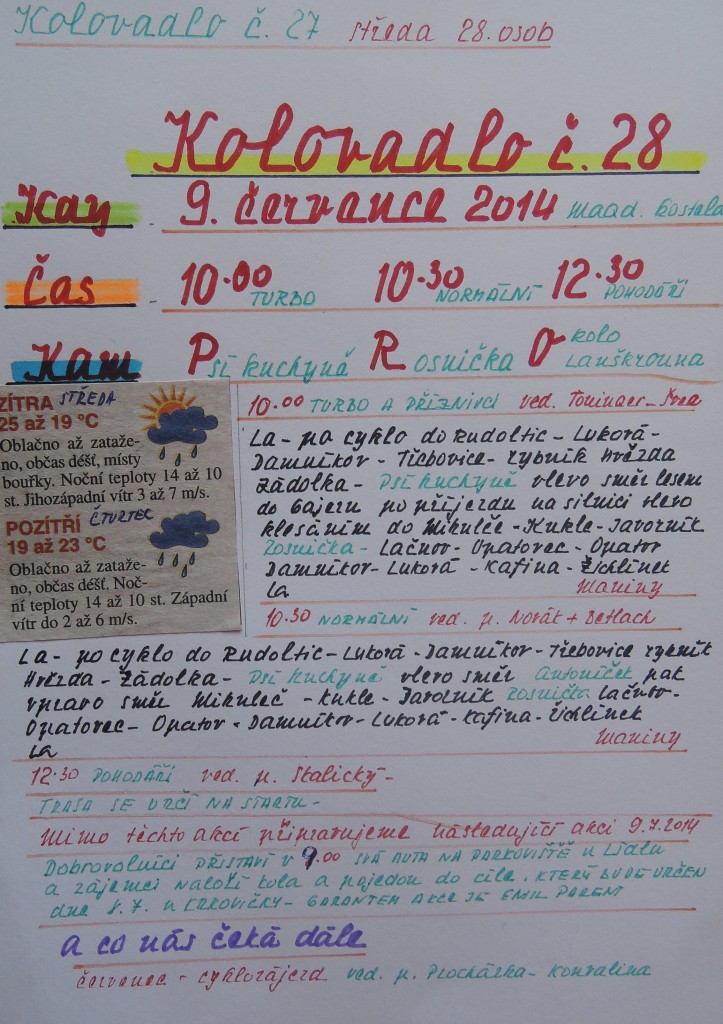 Kolovadlo č. 27 středa 28. osob
Kolovadlo č. 28
Kdy - 9. července 2014 Maad. kostela
Čas - 10.00 TURBO 10.30 NORMÁLNÍ 12.30 POHODÁŘI
Kam Psí kuchyně Rosnička Okolo Lanškrouna
ZÍTRA STŘEDA
25 až 19 °C
Oblačno až zataže-
no, občas déšť, místy
bouřky. Noční teploty 14 až 10
st. Jihozápadní vítr 3 až 7 m/s.
POZÍTŘÍ ČTVRTEC
19 až 23 °C
Oblačno až zataže-
no, občas déšť. Noč-
ní teploty 14 až 10 st. Západní
vítr do 2 až 6 m/s.
10.00 TURBO A PŘÍZNIVCI ved.
LA - po cyklo do Rudoltic - Luková -
Damníkov - Třebovice - rybník Hvězda
Zádolka - Psí kuchyně vlevo směr lesem
do Gajeru po příjezdu na silnici vlevo
klesáním do Mikulče - Kukle - Javorník
Rosnička - Lačnov - Opatovec - Opatov
Damníkov - Luková - Kafina - Žichlínek
LA Maniny
10.30 NORMÁLNÍ ved. p. Novák + Betlach
LA - po cyklo do Rudoltic - Luková - Damníkov - Třebovice rybník
Hvězda - Zádolka - Psí kuchyně vlevo směr Antoníček pak
vpravo směr Mikuleč - Kukle - Javorník Rosnička Lačnov -
Opatovec - Opatov - Damníkov - Luková - Kafina - Žichlínek
LA Maniny
12.30 POHODÁŘI ved. p. Skalický -
TRASA SE URČÍ NA STARTU -
Mimo těchto akcí připravujeme následující akci 9.7.2014
Dobrovolníci PŘISTAVÍ V 9.00 SVÁ AUTA NA PARKOVIŠTĚ u Lidlu
a zájemci naloží kola a pojedou do cíle, KTERÝ BUDE URČEN
dne 8.7. u KRKOVIČKY - GARANTEM AKCE JE EMIL PARENT
a co nás čeká dále
červenec - cyklozájezd ved. p. Procházka - Konvalina